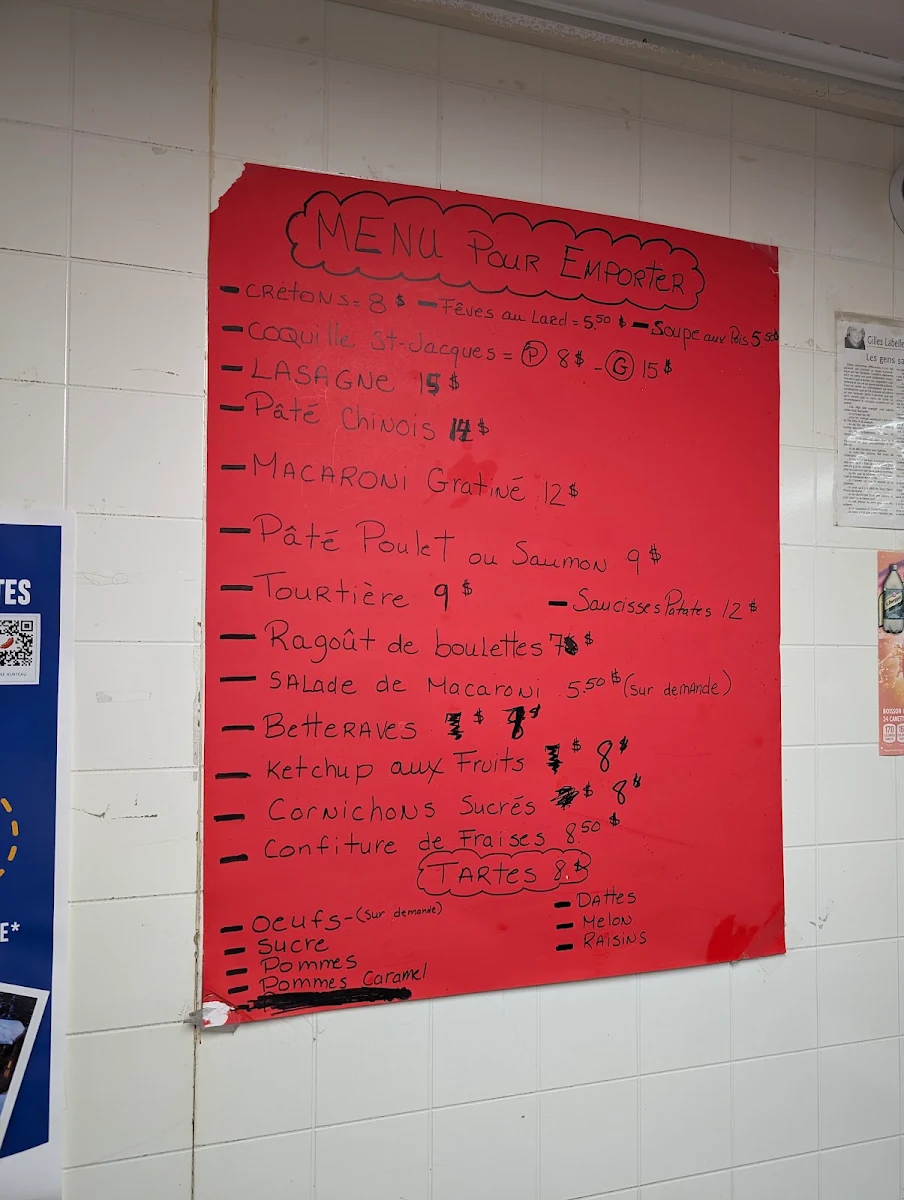 MENU Pour Emporter
- Crétons = 8 $ - Fêves au Lard = 5.50 $ - Soupe aux Pois 5.50$
- Coquille St-Jacques = (P) 8 $ - (G) 15 $
- LASAGNE 15 $
- Pâté Chinois 14 $
- MACARONi Gratiné 12 $
- Pâté Poulet ou Saumon 9 $
- Tourtière 9 $ - Saucisses Patates 12 $
- Ragoût de boulettes $
- SALade de Macaroni 5.50 $ (sur demande)
- Betteraves $ $
- Ketchup aux Fruits $ 8 $
- Cornichons Sucrés $ 8 $
- Confiture de Fraises 8.50 $
TARTES 8 $
- Oeufs - (sur demande)
- Sucre
- Pommes
- Pommes Caramel
- DATTES
- MELON
- RAISiNS
Gilles Labelle
Les gens sa
TES
E*
BOISSON
24 CANETT
170